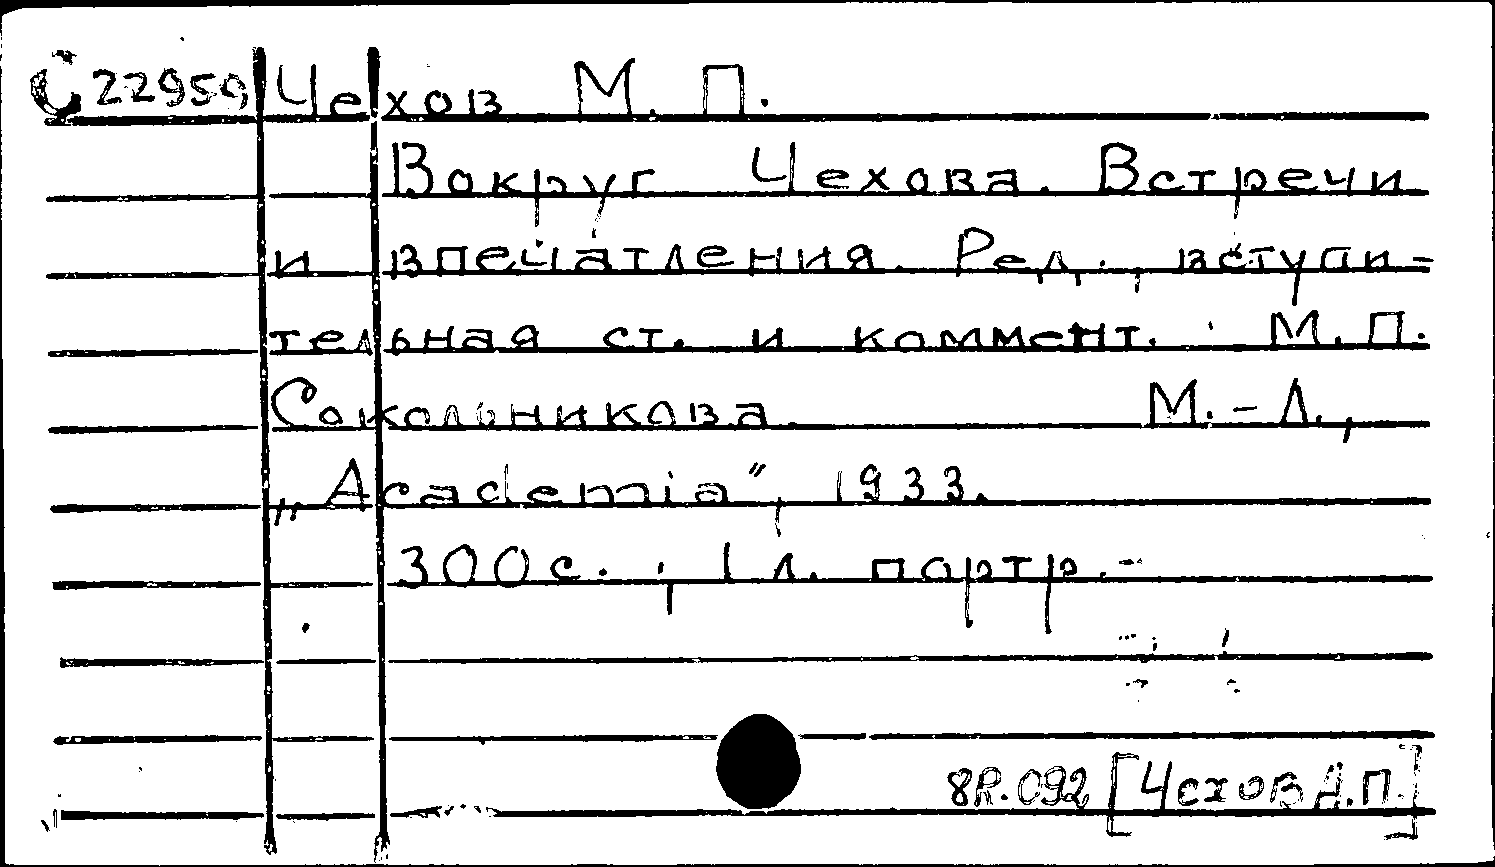 С22959 Чехов М. П.
Вокруг Чехова. Встречи
и впечатления. Ред., вступи-
тельная ст. и коммент. М. П.
Сокольникова. М.-Л.,
„Academia", 1933.
300 с., 1 л. портр.-
8R.092 [Чехов А.П.]